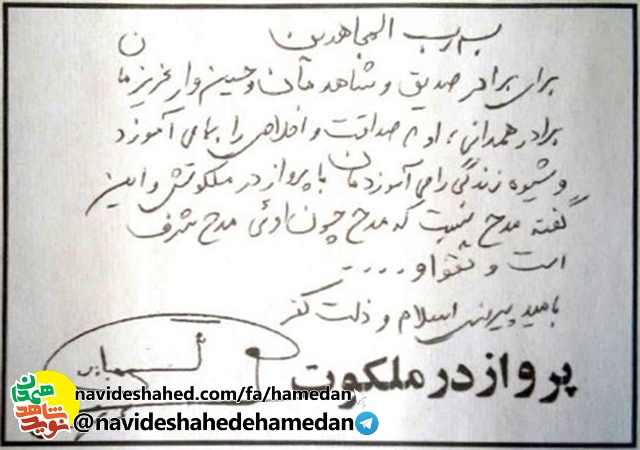 به رب المجاهدین
برای برادر صدیق و شاهدمان و حسین وار عزیزمان
برادر همدانی، او که صداقت و اخلاص را بما می آموزد
و شیوه زندگی را می آموزدمان با پرواز در ملکوتش و این
گفته مدح نیست که مدح چون اوئی مدح شرف
است و تقوا و ....
بامید پیروزی اسلام و ذلت کفر
پرواز در ملکوت
navideshahed.com/fa/hamedan
@navideshahedehamedan
نوید شاهد همدان